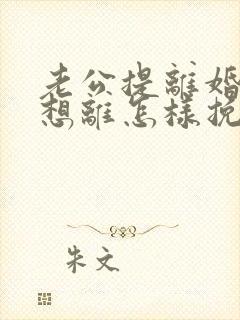 老公提離婚
想離怎樣挽
朱文